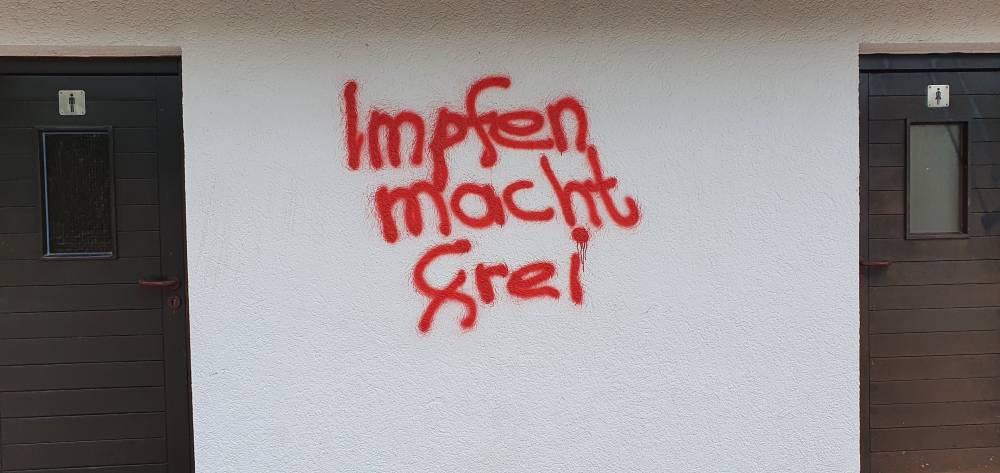 Impfen
macht
frei